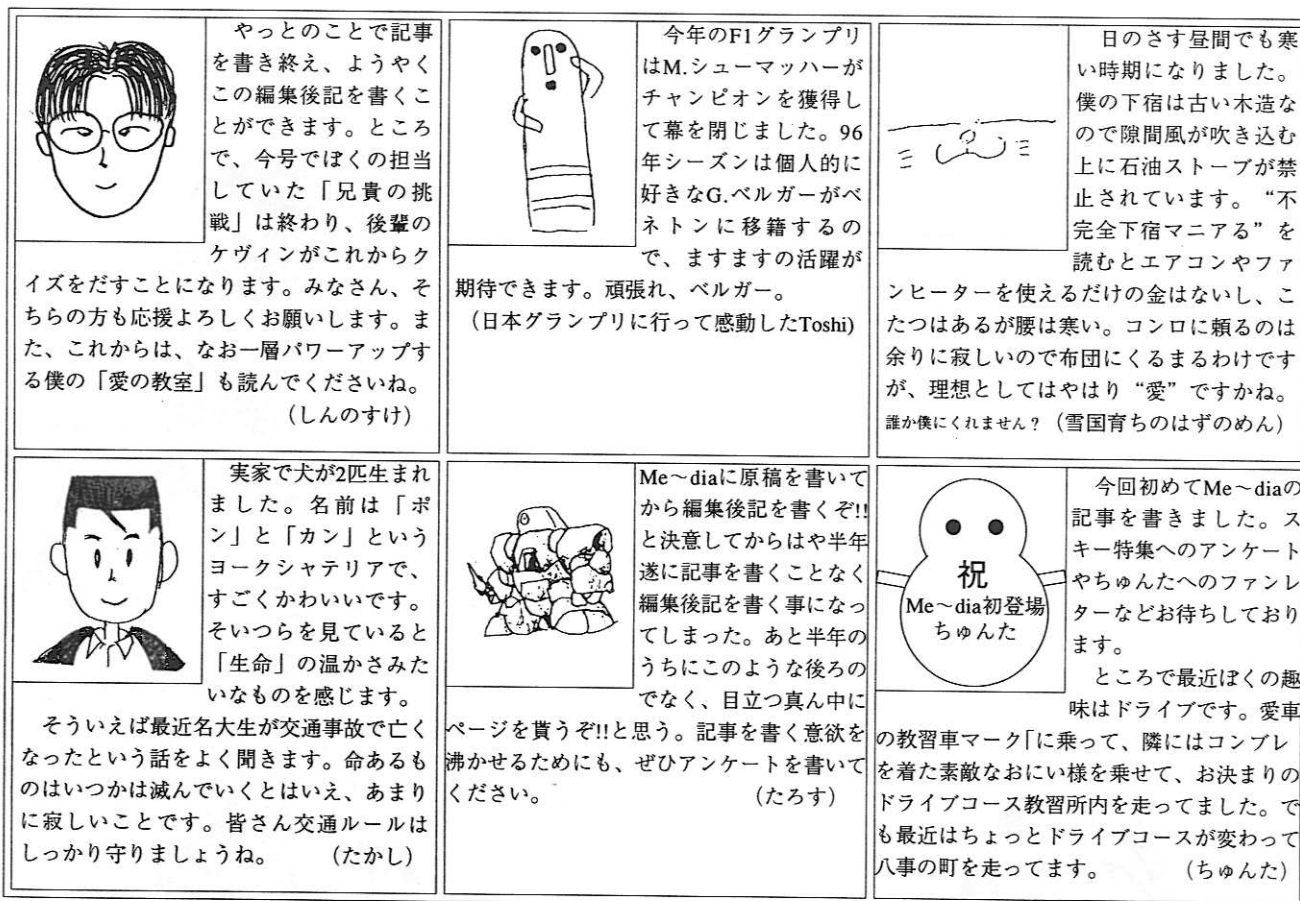 やっとのことで記事
を書き終え、ようやく
この編集後記を書くこ
とができます。ところ
で、今号でぼくの担当
していた「兄貴の挑
戦」は終わり、後輩の
ケヴィンがこれからク
イズをだすことになります。みなさん、そ
ちらの方も応援よろしくお願いします。ま
た、これからは、なお一層パワーアップす
る僕の「愛の教室」も読んでくださいね。
(しんのすけ)
今年のF1グランプリ
はM.シューマッハーが
チャンピオンを獲得し
て幕を閉じました。96
年シーズンは個人的に
好きなG.ベルガーがベ
ネトンに移籍するの
で、ますますの活躍が
期待できます。頑張れ、ベルガー。
(日本グランプリに行って感動したToshi)
日のさす昼間でも寒
い時期になりました。
僕の下宿は古い木造な
ので隙間風が吹き込む
上に石油ストーブが禁
止されています。“不
完全下宿マニアる”を
読むとエアコンやファ
ンヒーターを使えるだけの金はないし、こ
たつはあるが腰は寒い。コンロに頼るのは
余りに寂しいので布団にくるまるわけです
が、理想としてはやはり“愛”ですかね。
誰か僕にくれません?(雪国育ちのはずのめん)
実家で犬が2匹生まれ
ました。名前は「ポ
ン」と「カン」という
ヨークシャテリアで、
すごくかわいいです。
そいつらを見ていると
「生命」の温かさみた
いなものを感じます。
そういえば最近名大生が交通事故で亡く
なったという話をよく聞きます。命あるも
のはいつかは滅んでいくとはいえ、あまり
に寂しいことです。皆さん交通ルールは
しっかり守りましょうね。 (たかし)
Me~diaに原稿を書いて
から編集後記を書くぞ!!
と決意してからはや半年
遂に記事を書くことなく
編集後記を書く事になっ
てしまった。あと半年の
うちにこのような後ろの
でなく、目立つ真ん中に
ページを貰うぞ!!と思う。記事を書く意欲を
沸かせるためにも、ぜひアンケートを書いて
ください。 (たろす)
祝
Me~dia初登場
ちゅんた
今回初めてMe~diaの
記事を書きました。ス
キー特集へのアンケート
やちゅんたへのファンレ
ターなどお待ちしており
ます。
ところで最近ぼくの趣
味はドライブです。愛車
の教習車マーク「に乗って、隣にはコンブレ
を着た素敵なおにい様を乗せて、お決まりの
ドライブコース教習所内を走ってました。で
も最近はちょっとドライブコースが変わって
八事の町を走ってます。 (ちゅんた)